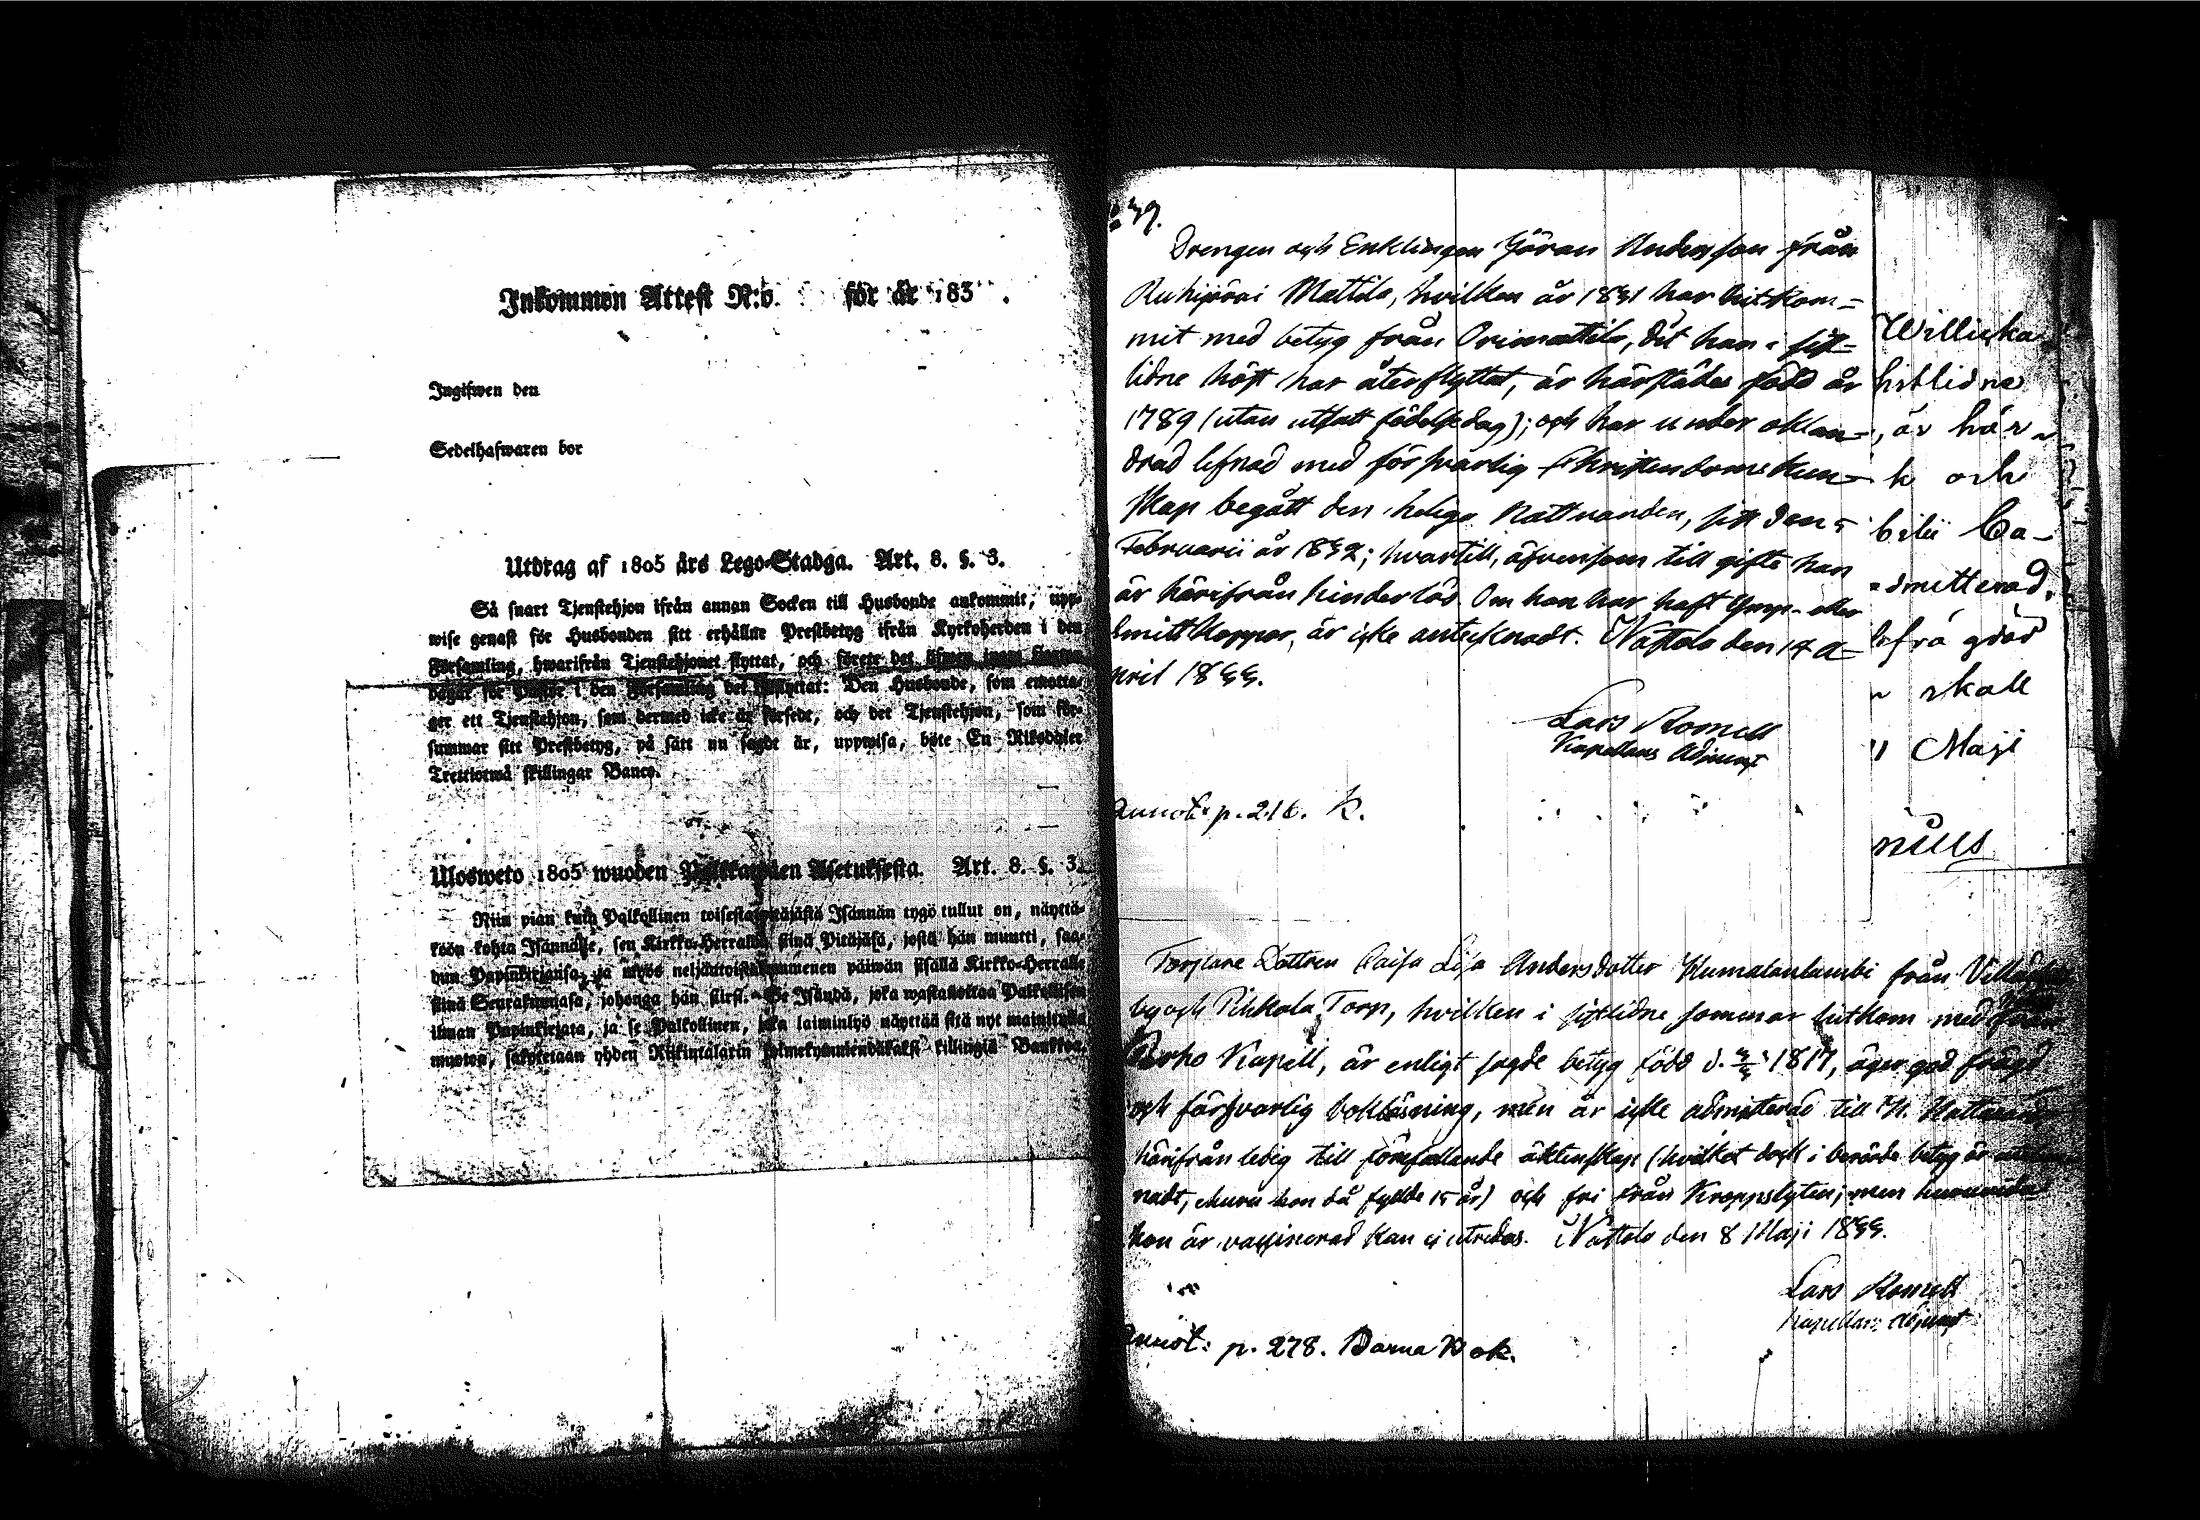 Inkommen Attest N:o för år 183 .
Ingifwen den
Sedelhafwaren bor
Utdrag af 1805 års Lego-Stadga. Art. 8. §. 3.
Så snart Tjenstehjon ifrån annan Socken till Husbonde ankommit, upp-
wise genast för Husbonden sitt erhållne Prestbetyg ifrån Kyrkoherden i den
Församling, hwarifrån Tjenstehjonet flyttat, och förete det äfwen inom fjorton
dagar för Pastor i den Församling det inflyttat: Den Husbonde, som emotta-
ger ett Tjenstehjon, som dermed icke är försedt, och det Tjenstehjon, som för-
summar sitt Prestbetyg, på sätt nu sagdt är, uppwisa, böte En Riksdaler
Trettiotwå skillingar Banco.
Ulosweto 1805 wuoden Palkkawäen Asetuksesta. Art. 8. §. 3.
Niin pian kuin Palkollinen toisesta pitäjästä Isännän tygö tullut on, näyttä-
köön kohta Isännälle, sen Kirkko-Herralda siinä Pitäjäsä, josta hän muutti, saa-
dun Papinkirjansa, ja myös neljäntoistakymmenen päiwän sisällä Kirkko-Herralle
siinä Seurakunnasa, johonga hän siirsi. Se Isändä, joka wastaanottaa Palkollisen
ilman Papinkirjata, ja se Palkollinen, joka laiminlyö näyttää sitä nyt mainitulla
muoton, sakoitetaan yhden Riikintalarin kolmekymmendäkaksi killingiä Bankkoa.
39.
Drengen och Enklingen Jöran Andersson från
Ruhijärvi Mattila, hvilken år 1831 har hitkom=
mit med betyg från Orimattila, dit han i sist=
lidne höst har återflyttat, är härstädes född år
1789 (utan utsatt födelsedag); och har under oklan=
drad lefnad med försvarlig Christendoms kun=
skap begått den heliga Nattvarden, sist den 5
Februarii år 1832; hvartill, äfvensom till gifte han
är härifrån hinderlös. Om han har haft Ymp- eller
Smittkoppor, är icke antecknadt. Nastola den 14 A=
pril 1833.
Lars Romell
Kapellans Adjunct
Annot. p. 216. K.
Willieka
histlidne
, är här
k och
bilii Ca-
admitterad,
frägdad
skall
Maji
nius
Torpare Dottren Caisa Lisa Andersdotter Kumalanlambi från Villähde
by och Pihkala Torp, hvilken i sistlidne sommar hitkom med från
Perho Kapell, är enligt sagde betyg född d. 1817, äger god frägd
och försvarlig bokläsning, men är icke admitterad till H. Nattvard
härifrån ledig till förefallande äktenskap (hvilket dock i berörde betyg är
nadt, ehuru hon då fyllde 15 år) och fri från Kroppslyten; men huruvida
hon är vaccinerad kan ej utredas. Nastola den 8 Maji 1833.
Lars Romell
Kapellans Adjunct
Annot: p. 278. Barna Bok.